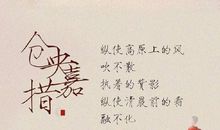 仓央嘉措
纵使高原上的风
吹不散
执着的背影
纵使清晨前的霜
融不化